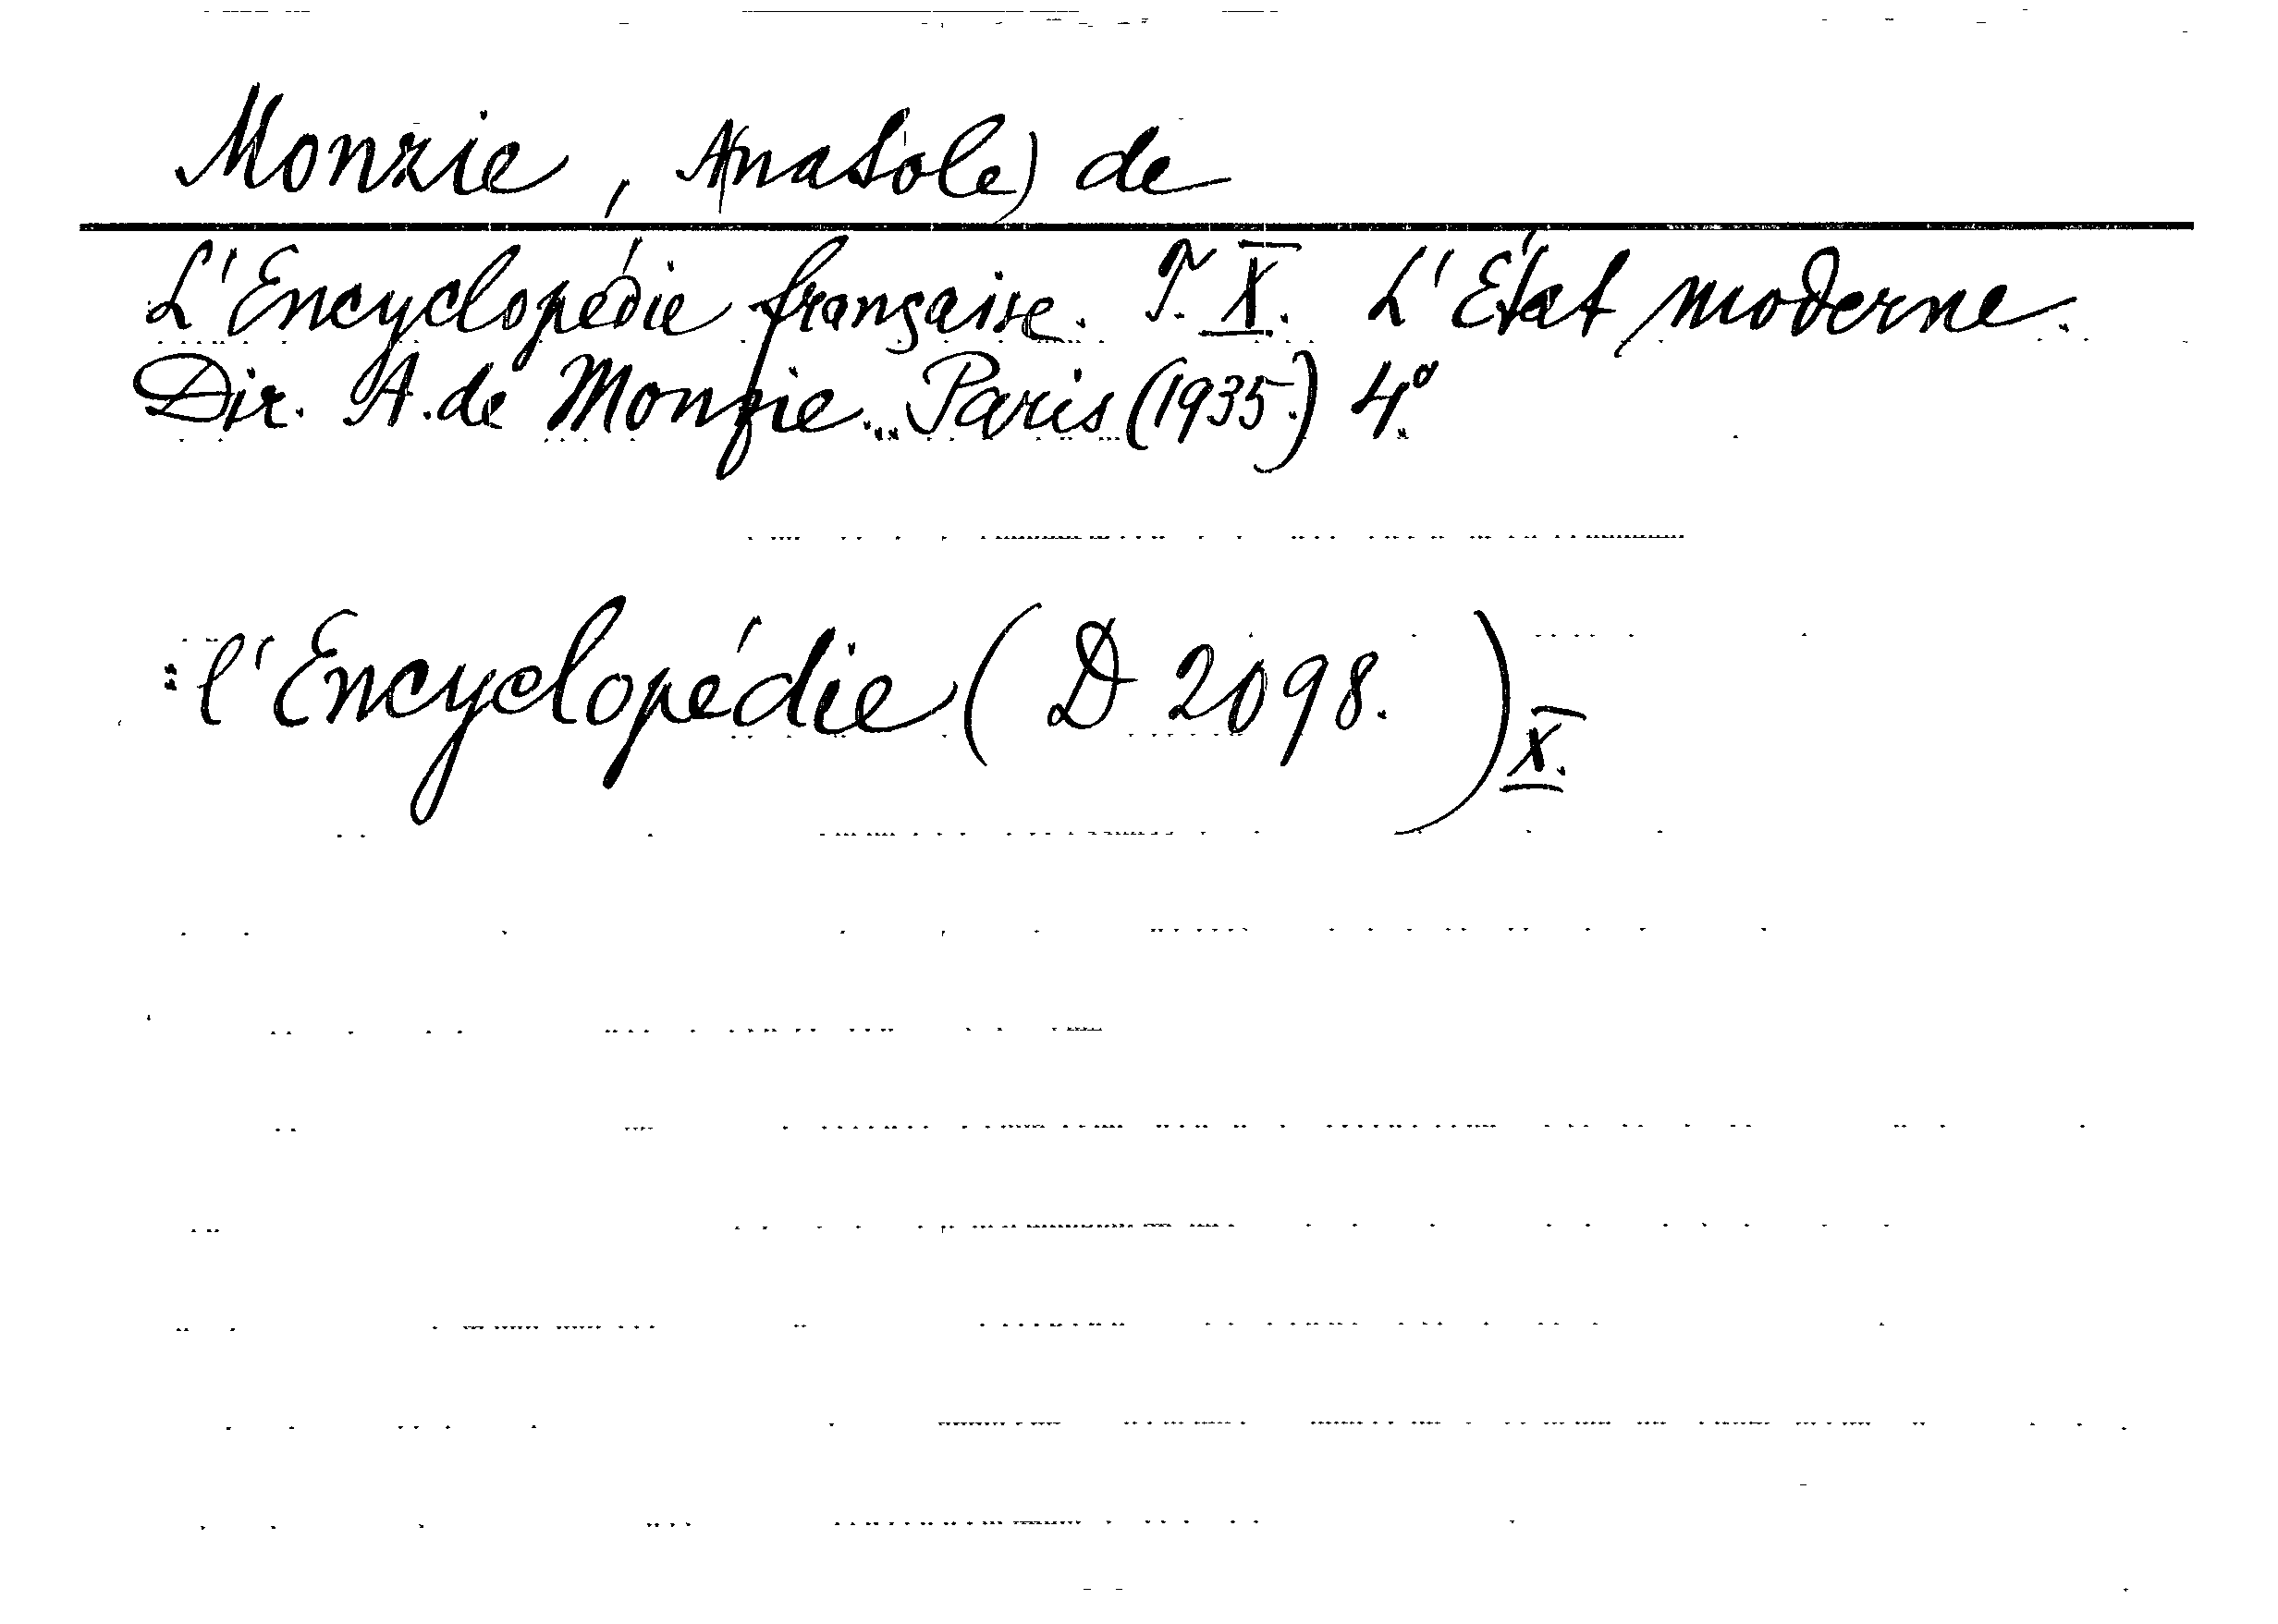 Monzie, A(natole) de
L'Encyclopédie française. T. X. L'État moderne.
Dir. A. de Monzie. Paris (1935.) 4°
: l'Encyclopédie (D 2098.) X.